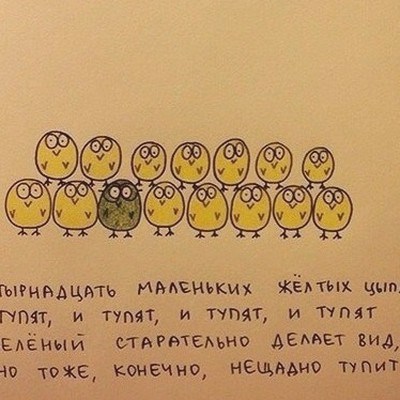 ТЫРНАДЦАТЬ МАЛЕНЬКИХ ЖЁЛТЫХ ЦЫПЛ
ТУПЯТ, И ТУПЯТ, И ТУПЯТ, И ТУПЯТ
ЕЛЁНЫЙ СТАРАТЕЛЬНО ДЕЛАЕТ ВИД,
НО ТОЖЕ, КОНЕЧНО, НЕЩАДНО ТУПИТ